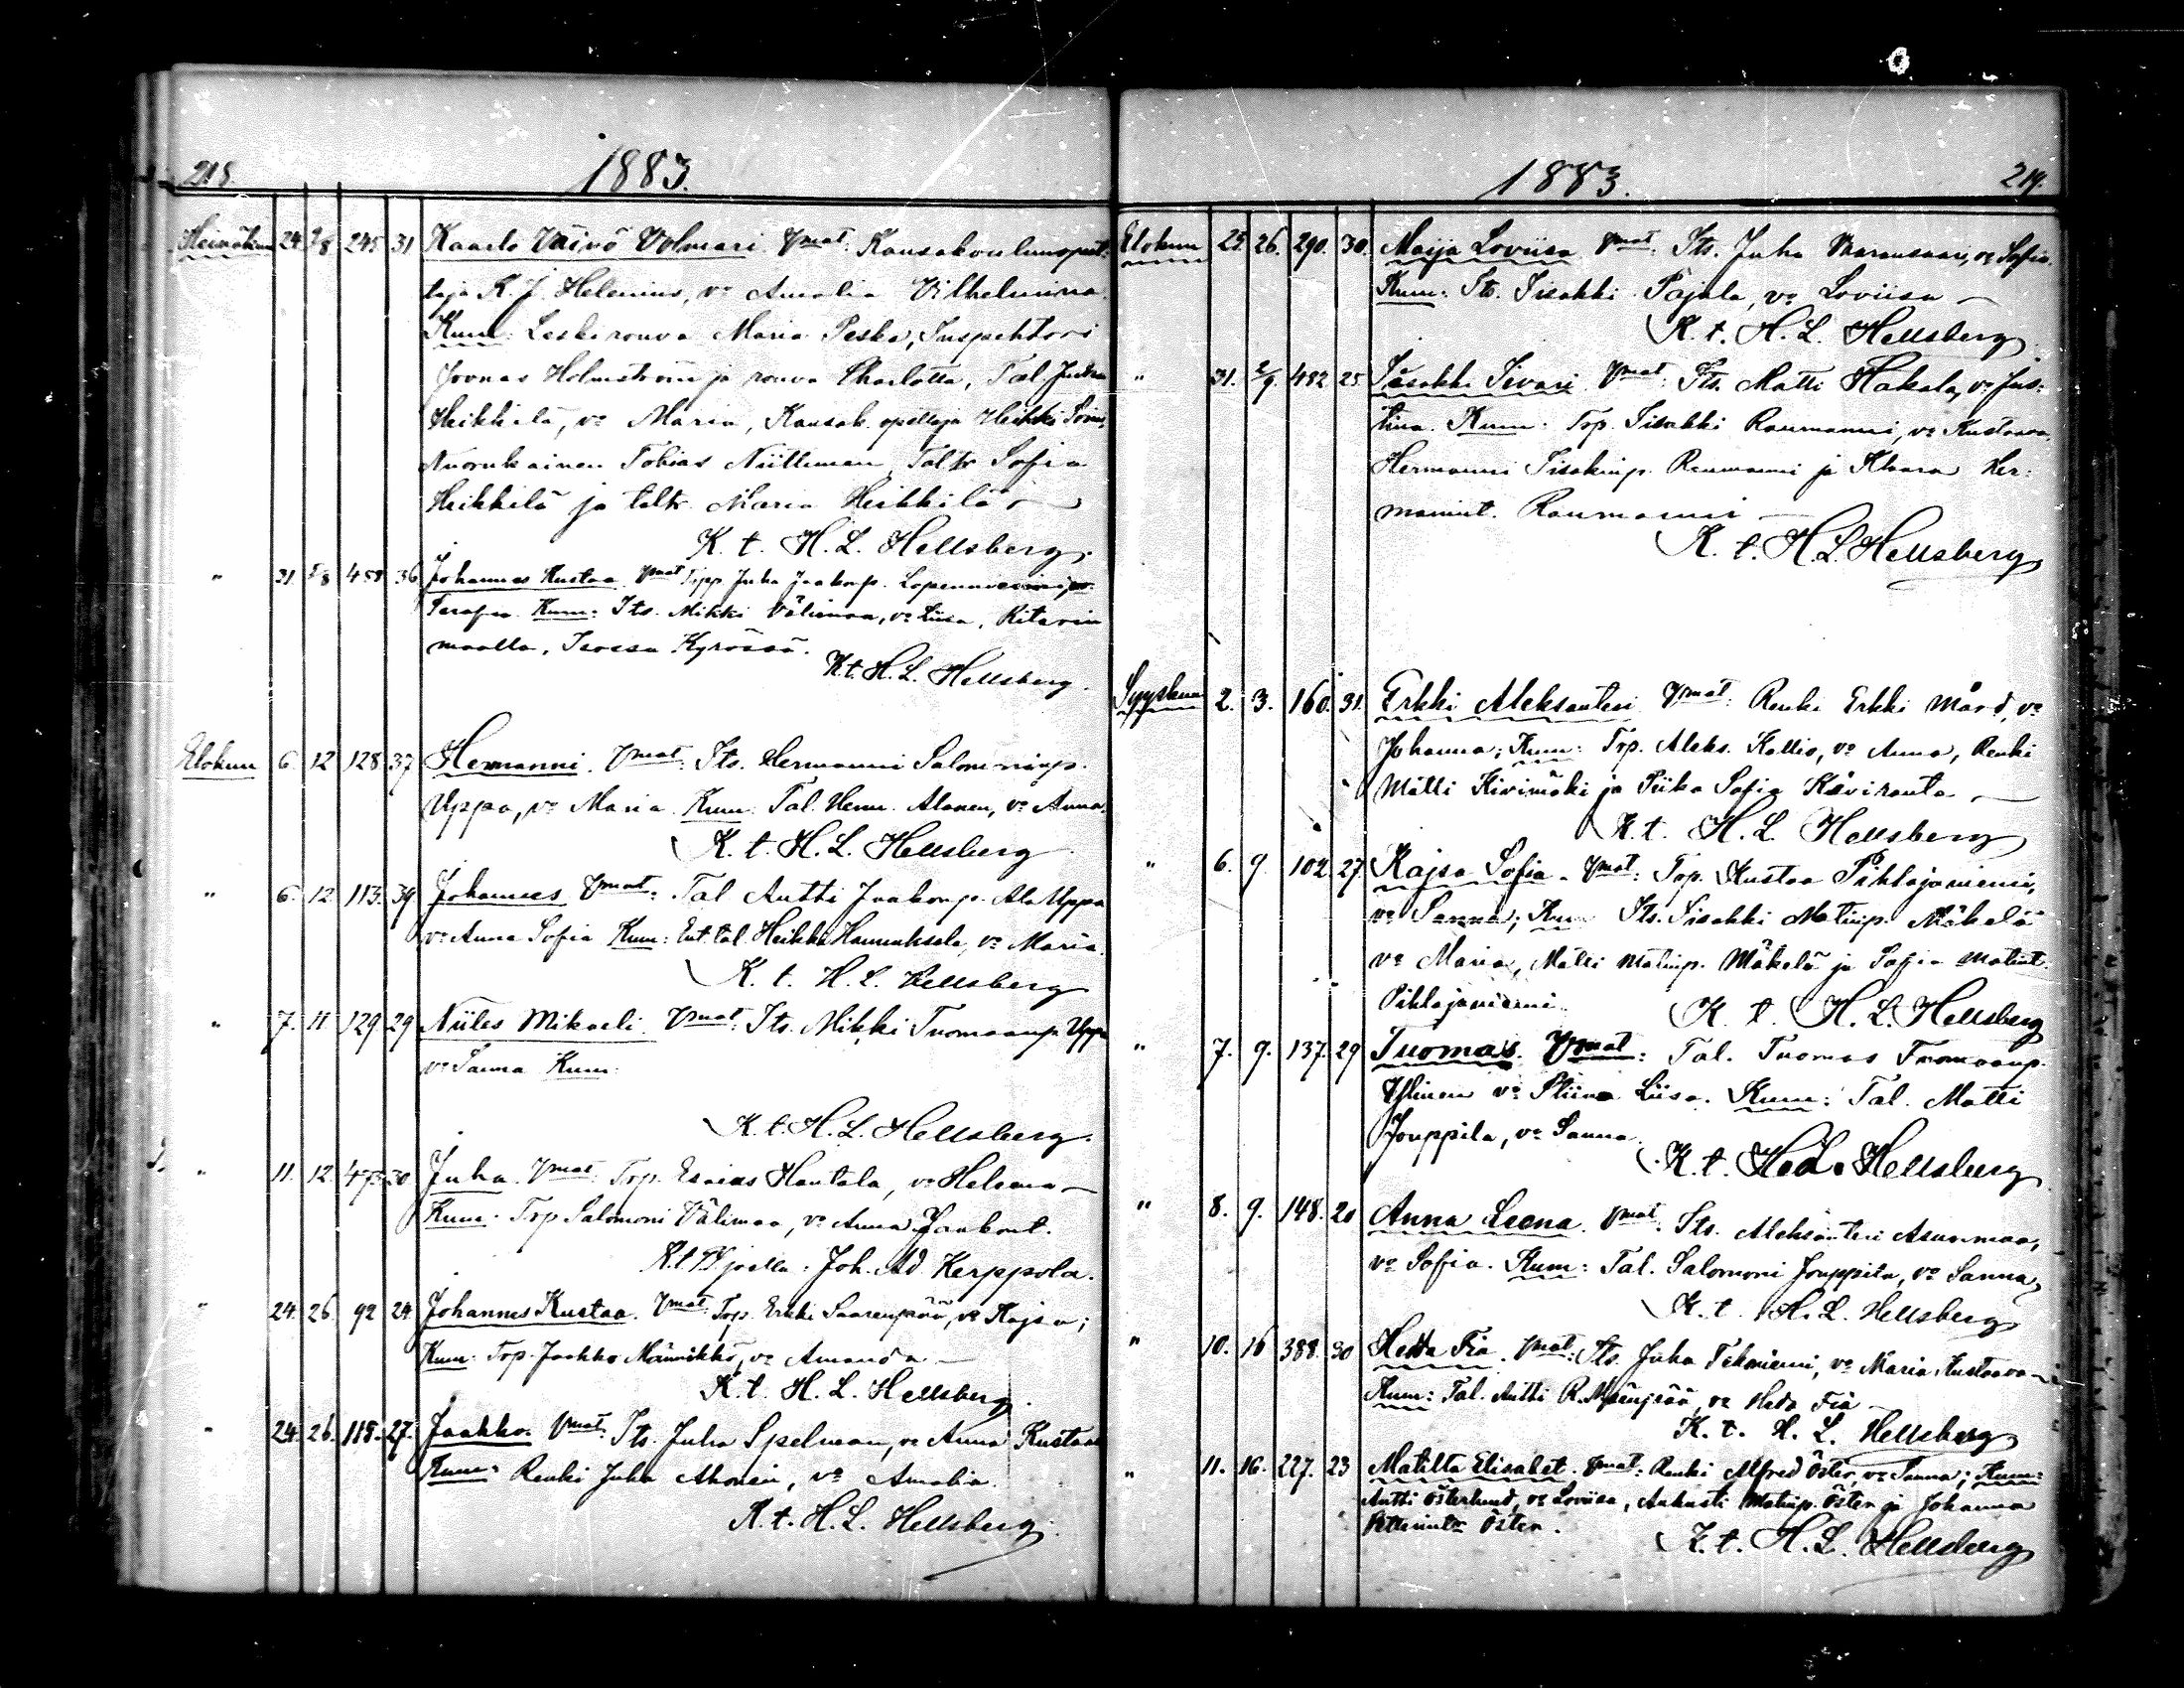 218.
1883.
Heinäkuu 24. 9/8 245 31 Kaarlo Väinö Volmari. Vmat: Kansakoulunopet-
taja K. J. Helenius, vo Amalia Vilhelmina.
Kum: Leskirouva Maria Peska, Inspehtori
Joonas Holmström ja rouva Charlotta, Tal. Juha
Heikkilä, vo Maria, Kansak. opettaja Heikki
Nuorukainen Tobias Niilleman, Taltr Sofia
Heikkilä ja taltr. Maria Heikkilä
K. t. H. L. Hellsberg.
" 31 5/8 36 Johannes Kustaa. Vmat Juha Jaakonp.
Serafia. Kum: Its. Mikki Välimaa, vo Liisa,
maalla, Isossa Kyrössä.
K. t. H. L. Hellsberg.
Elokuu 6. 12 128 37 Hermanni. Vmat: Its. Hermanni Salomoninp.
Uppa, vo Maria. Kum: Tal. Herm. Alanen, vo Anna.
K. t. H. L. Hellsberg
" 6. 12. 113. 39 Johannes Vmat: Tal Antti Jaakonp. Ala Uppa
vo Anna Sofia Kum: Ent. tal. Heikki Hannuksela, vo Maria.
K. t. H. L. Hellsberg
" 7. 11 129 29 Niiles Mikaeli. Vmat: Its. Mikki Tuomaanp. Uppa
vo Sanna Kum:
K. t. H. L. Hellsberg.
" 11. 12. 30 Juha. Vmat: Trp. Esaias Hautala, vo Helena
Kum: Trp Salomoni Välimaa, vo Anna Jaakont.
Joh. Ad. Kerppola.
" 24. 26. 92 24 Johannes Kustaa. Vmat: Trp. Erkki Saarenpää, vo Kajsa;
Kum: Trp. Jaakko Männikkö, vo Amanda
K. t. H. L. Hellsberg.
" 24. 26. 118. 27. Jaakko. Vmat: Its. Juha Spelman, vo Anna Kustaava
Kum: Renki Juha Ahonen, vo Amalia.
K. t. H. L. Hellsberg.
1883.
219.
Elokuu 25. 26. 290. 30. Maija Loviisa Vmat: Its. Juha vo Sofia.
Kum: Its. Iisakki Pajula, vo Loviisa
K. t. H. L. Hellsberg
" 31. 2/9. 432 25 Iisakki Iivari. Vmat: Its. Matti Hakala, vo Jus-
tina. Kum: Trp. Iisakki Raumanni, vo Kustaava,
Hermanni Iisakinp. Raumanni ja Klaara Her-
mannint. Raumanni
K. t. H. L. Hellsberg
Syyskuu 2. 3. 160. 31. Erkki Aleksanteri Vmat: Renki Erkki Mård, vo
Johanna; Kum: Trp. Aleks. Kallio, vo Anna, Renki
Matti Kivimäki ja Piika Sofia Käviranta
K. t. H. L. Hellsberg
" 6. 9. 102. 27 Kajsa Sofia. Vmat: Trp. Kustaa Pihlajaniemi,
vo Sanna; Kum Its. Iisakki Matinp. Mäkelä
vo Maria, Matti Matinp. Mäkelä ja Sofia Matint.
Pihlajaniemi.
K. t. H. L. Hellsberg
" 7. 9. 137. 29 Tuomas. Vmat: Tal. Tuomas Tuomaanp.
Ylinen vo Stiina Liisa. Kum: Tal. Matti
Jouppila, vo Sanna.
K. t. H. L. Hellsberg
" 8. 9. 148. 20 Anna Leena. Vmat: Its. Aleksanteri Asunmaa,
vo Sofia. Kum: Tal. Salomoni Jouppila, vo Sanna
K. t. H. L. Hellsberg
" 10. 16 388. 30 Hedda Fia. Vmat: Its. Juha vo Maria Kustaava
Kum: Tal. Antti vo Heda Fia
K. t. H. L. Hellsberg
" 11. 16. 227. 23 Matilta Elisabet. Vmat: Renki Alfred Öster, vo Sanna; Kum:
Antti Österlund, vo Loviisa, Aukusti Matinp. Öster ja Johanna
Öster.
K. t. H. L. Hellsberg